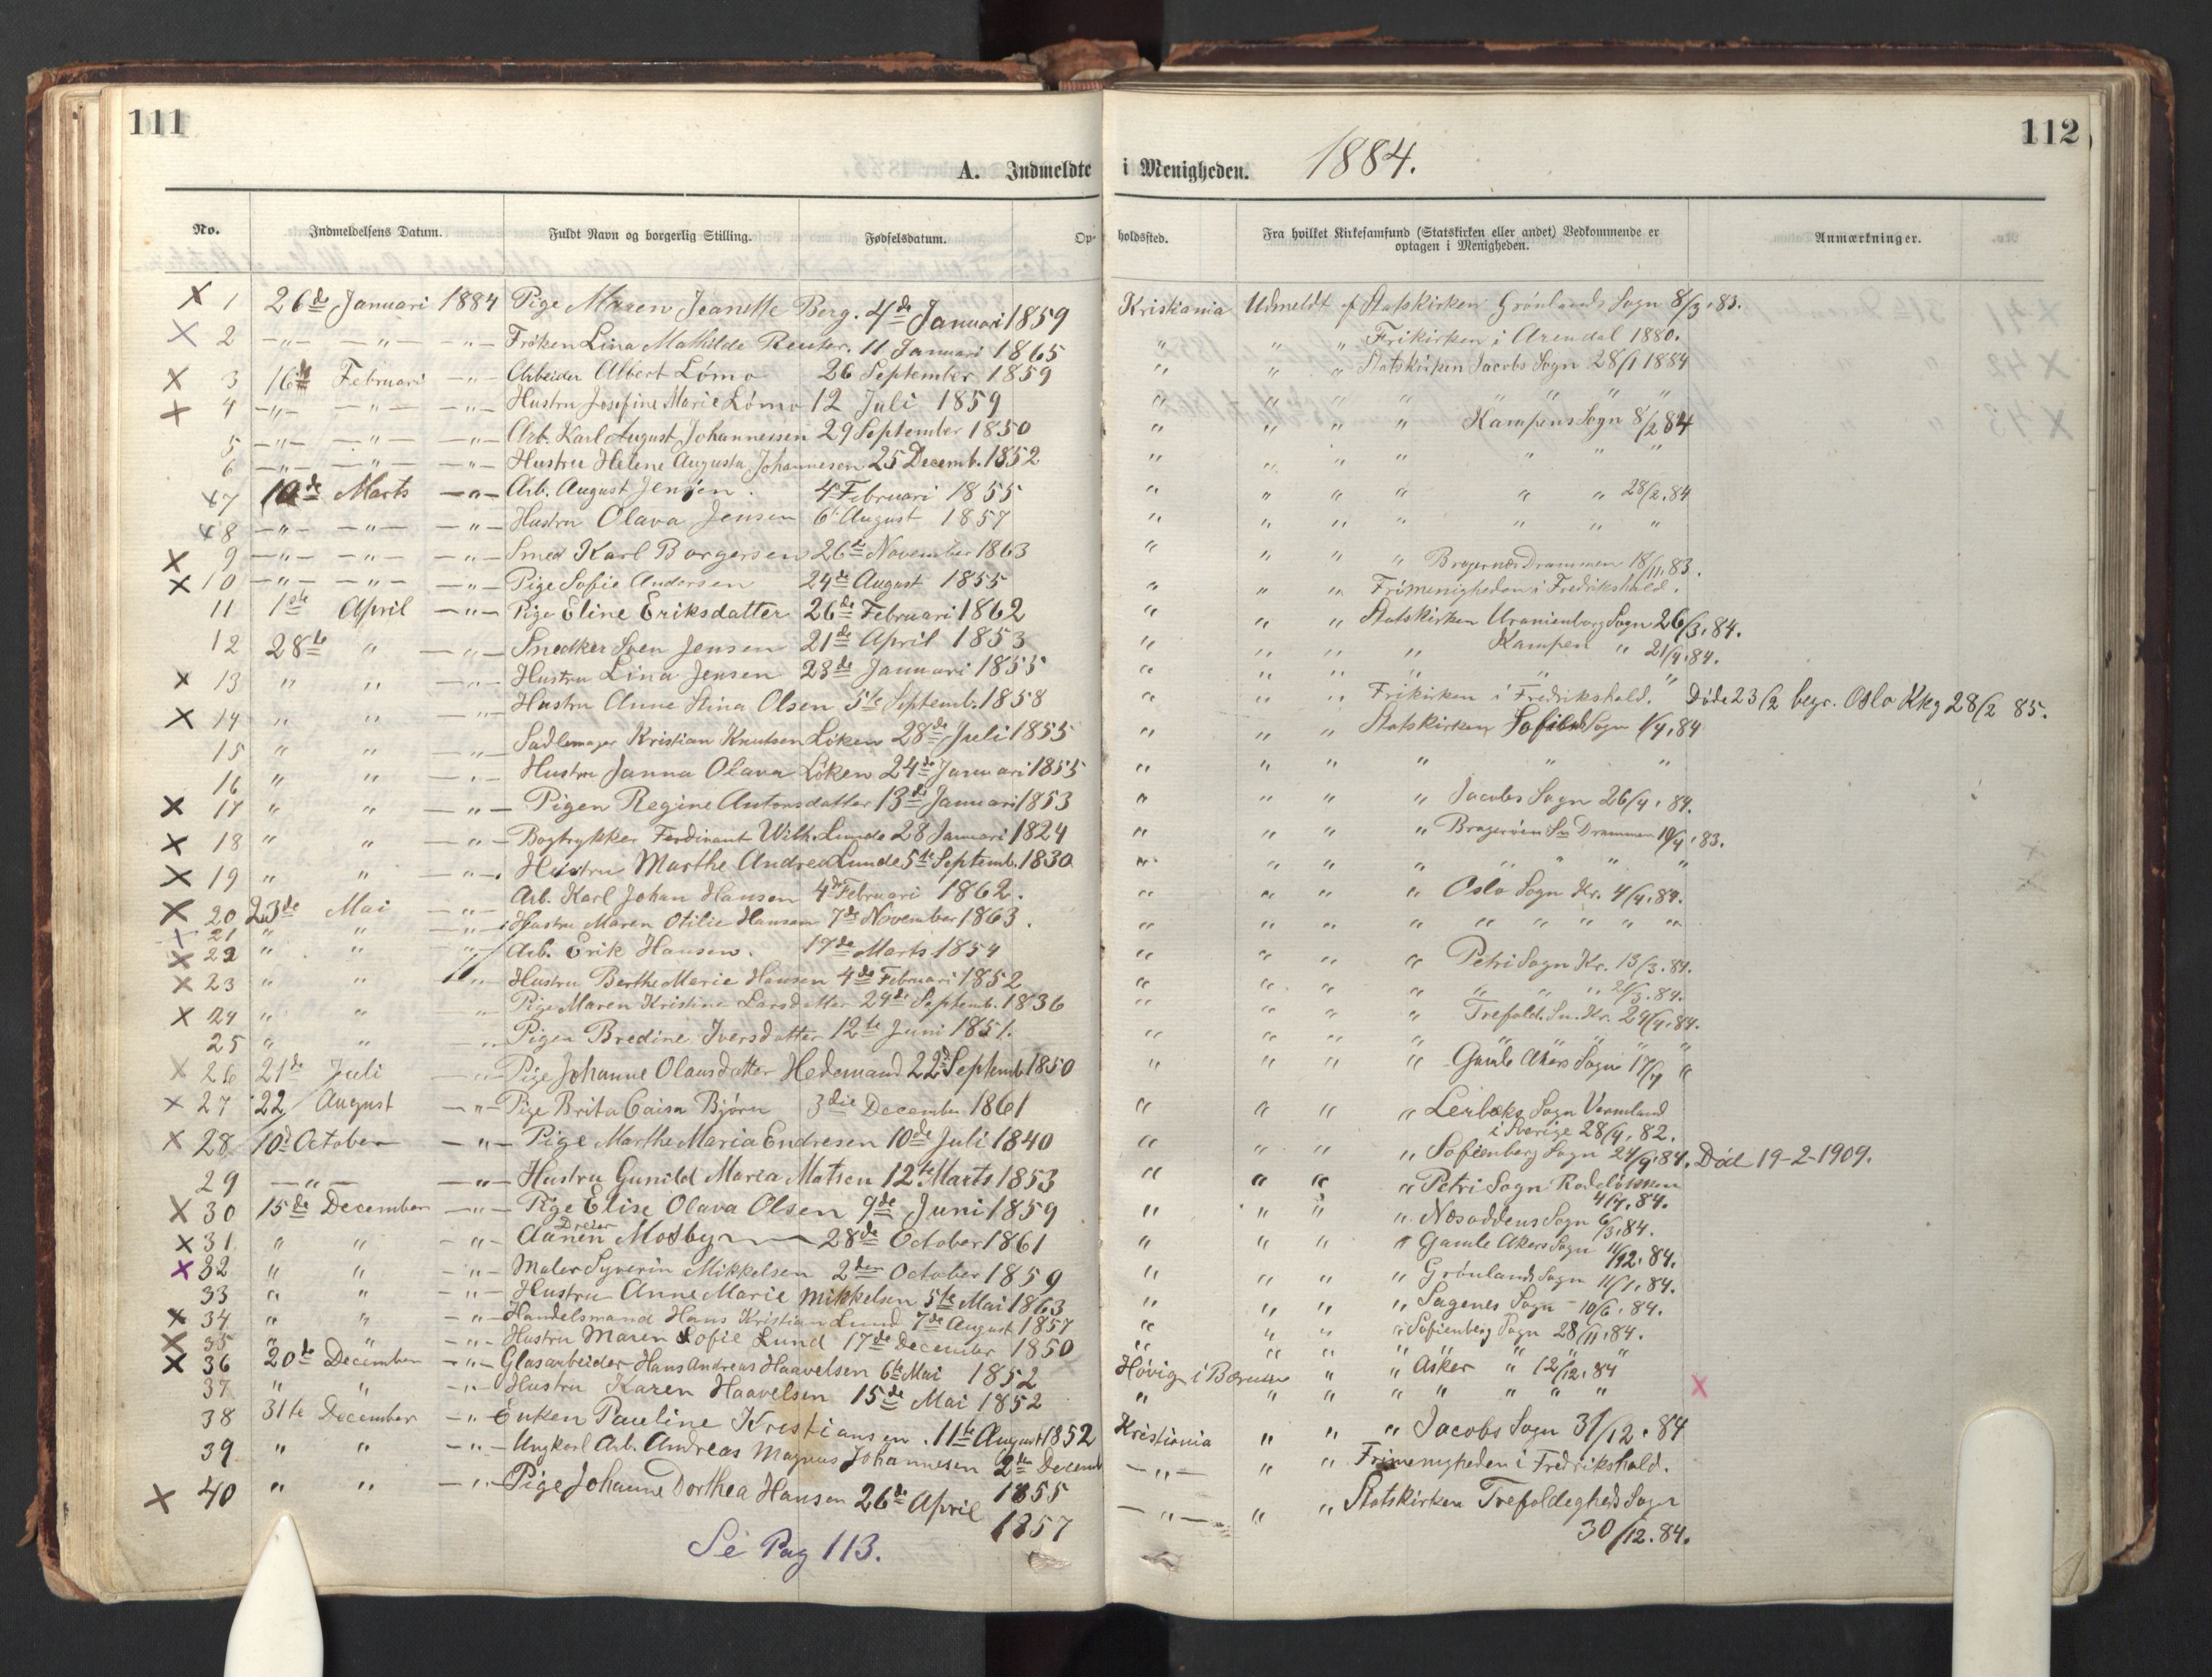 111
112
A. Indmeldte i Menigheden. 1884.
No. Indmeldelsens Datum. Fuldt Navn og borgerlig Stilling. Fødselsdatum. Opholdsted. Fra hvilket Kirkesamfund (Statskirken eller andet) Vedkommende er optagen i Menigheden. Anmærkninger.
X 1 26de Januari 1884 Pige Maren Jeanette Berg. 4de Januari 1859 Kristiania Udmeldt af Statskirken Grönlands Sogn 8/3.83.
X 2 -"- -"- -"- Fröken Lina Mathilde Reuter. 11 Januari 1865 " " " Frikirken i Arendal 1880.
X 3 16de Februari -"- Arbeider Albert Lömo 26 September 1859 " " " Statskirken Jacobs Sogn 28/1 1884
X 4 -"- -"- -"- Hustru Josefine Marie Lömo 12 Juli 1859 " " " " " " "
5 -"- -"- -"- Arb. Karl August Johannessen 29 September 1850 " " " " Kampens Sogn 8/2 84
6 -"- -"- -"- Hustru Helene Augusta Johannesen 25 Decemb. 1852 " " " " " " "
x 7 10de Marts -"- Arb. August Jensen. 4 Februari 1855 " " " " " " 28/2.84
x 8 -"- -"- -"- Hustru Olava Jensen 6 August 1857 " " " " " " "
X 9 -"- -"- -"- Smed Karl Borgersen 26de November 1863 " " " " Bragernæs Drammen 18/11.83.
X 10 -"- -"- -"- Pige Sofie Andersen 24de August 1855 " " " Frimenigheden i Fredrikshald.
11 1ste April -"- Pige Eline Eriksdatter 26de Februari 1862 " " " Statskirken Uranienborg Sogn 26/3.84.
12 28de " -"- Snedker Sven Jensen 21de April 1853 " " " " Kampen " 21/4.84.
X 13 " " -"- Hustru Lina Jensen 23de Januari 1855 " " " " " "
X 14 " " -"- Hustru Anne Stina Olsen 5te Septemb. 1858 " " " Frikirken i Fredrikshald. Døde 23/2 begr. Oslo Kkg 28/2 85.
15 " " -"- Sadlemager Kristian Knutsen Löken 28de Juli 1855 " " " Statskirken Sogn 1/4.84
16 " " -"- Hustru Janna Olava Löken 24de Januari 1855 " " " " " "
X 17 " " -"- Pigen Regine Antonsdatter 13de Januari 1853 " " " " Jacobs Sogn 26/4.84.
X 18 " " -"- Bogtrykker Ferdinant Wilh. Lunde 28 Januari 1824 " " " " Drammen 19/4.83.
X 19 " " -"- Hustru Marthe Andrea Lunde 5te Septemb. 1830 " " " " " " " "
X 20 23de Mai -"- Arb. Karl Johan Hansen 4de Februari 1862. " " " " Oslo Sogn Kr. 4/4.84.
x 21 " " -"- Hustru Maren Otilie Hansen 7de November 1863. " " " " " " " " "
X 22 " " " Arb. Erik Hansen. 17de Marts 1854 " " " " Petri Sogn Kr. 13/3.84.
X 23 " " -"- Hustru Berthe Marie Hansen 4de Februari 1852 " " " " " " " 21/3.84.
X 24 " " -"- Pige Maren Kristine Larsdatter 24de Septemb. 1836 " " " " Trefold. Sn. Kr. 24/4.84.
25 " " -"- Pigen Bredine Iversdatter 12te Juni 1851. " " " " " " " "
X 26 21de Juli -"- Pige Johanne Olausdatter Hedemand 22de Septemb 1850 " " " " Gamle Akers Sogn 17/7 "
X 27 22 August -"- Pige Brita Caisa Björn 3die December 1861 " " " " Lerbæks Sogn Vermland
i Sverige 28/4.82.
X 28 10de October -"- Pige Marthe Maria Endresen 10de Juli 1840 " " " " Sofienberg Sogn 24/9.84. Död 19-2-1909.
29 -"- -"- Hustru Gunild Maria Matsen 12te Marts 1853 " " " " Petri Sogn Rodelökken
4/7.84.
X 30 15de December -"- Pige Elise Olava Olsen 9de Juni 1859 " " " " Næsoddens Sogn 6/3.84.
Dreier
X 31 " " -"- Aanen Mosby 28de October 1861 " " " " Gamle Akers Sogn 11/12.84.
X 32 " " -"- Maler Syverin Mikkelsen 2den October 1859 " " " " Grönland Sogn 11/1.84.
33 " " -"- Hustru Anne Marie Mikkelsen 5te Mai 1863 " " " " Sagenes Sogn - 10/6.84.
X 34 " " -"- Handelsmand Hans Kristian Lund 7de August 1857 " " " " Sofienberg Sogn 28/11.84.
X 35 " " -"- Hustru Maren Sofie Lund 17de December 1850 " " " " " "
X 36 20de December -"- Glasarbeider Hans Andreas Haavelsen 6te Mai 1852 Hövig i Bærum " " Asker " 12/12.84
37 " " -"- Hustru Karen Haavelsen 15de Mai 1852 " " " " " " " " X
38 31te December -"- Enken Pauline Kristiansen. 11te August 1852 Kristiania " " " Jacobs Sogn 31/12.84
39 " " -"- Ungkarl Arb. Andreas Magnus Johannesen 2den Decemb 1855 -"- " " Frimenigheden i Fredrikshald.
X 40 " " -"- Pige Johanne Dorthea Hansen 26de April 1857 -"- " " Statskirken Trefoldigheds Sogn
30/12.84.
Se Pag 113.